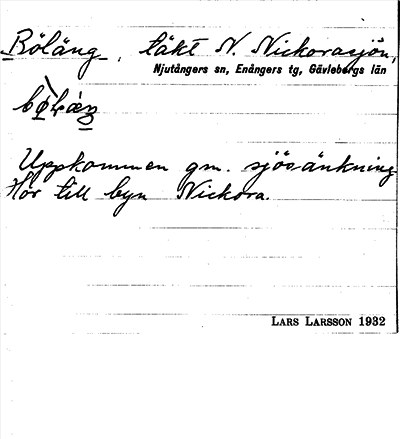 Böläng, täkt N. Nickorasjön,
Njutångers sn, Enångers tg, Gävleborgs län
Uppkommen gm. sjösänkning
Hör till byn Nickora.
LARS LARSSON 1932